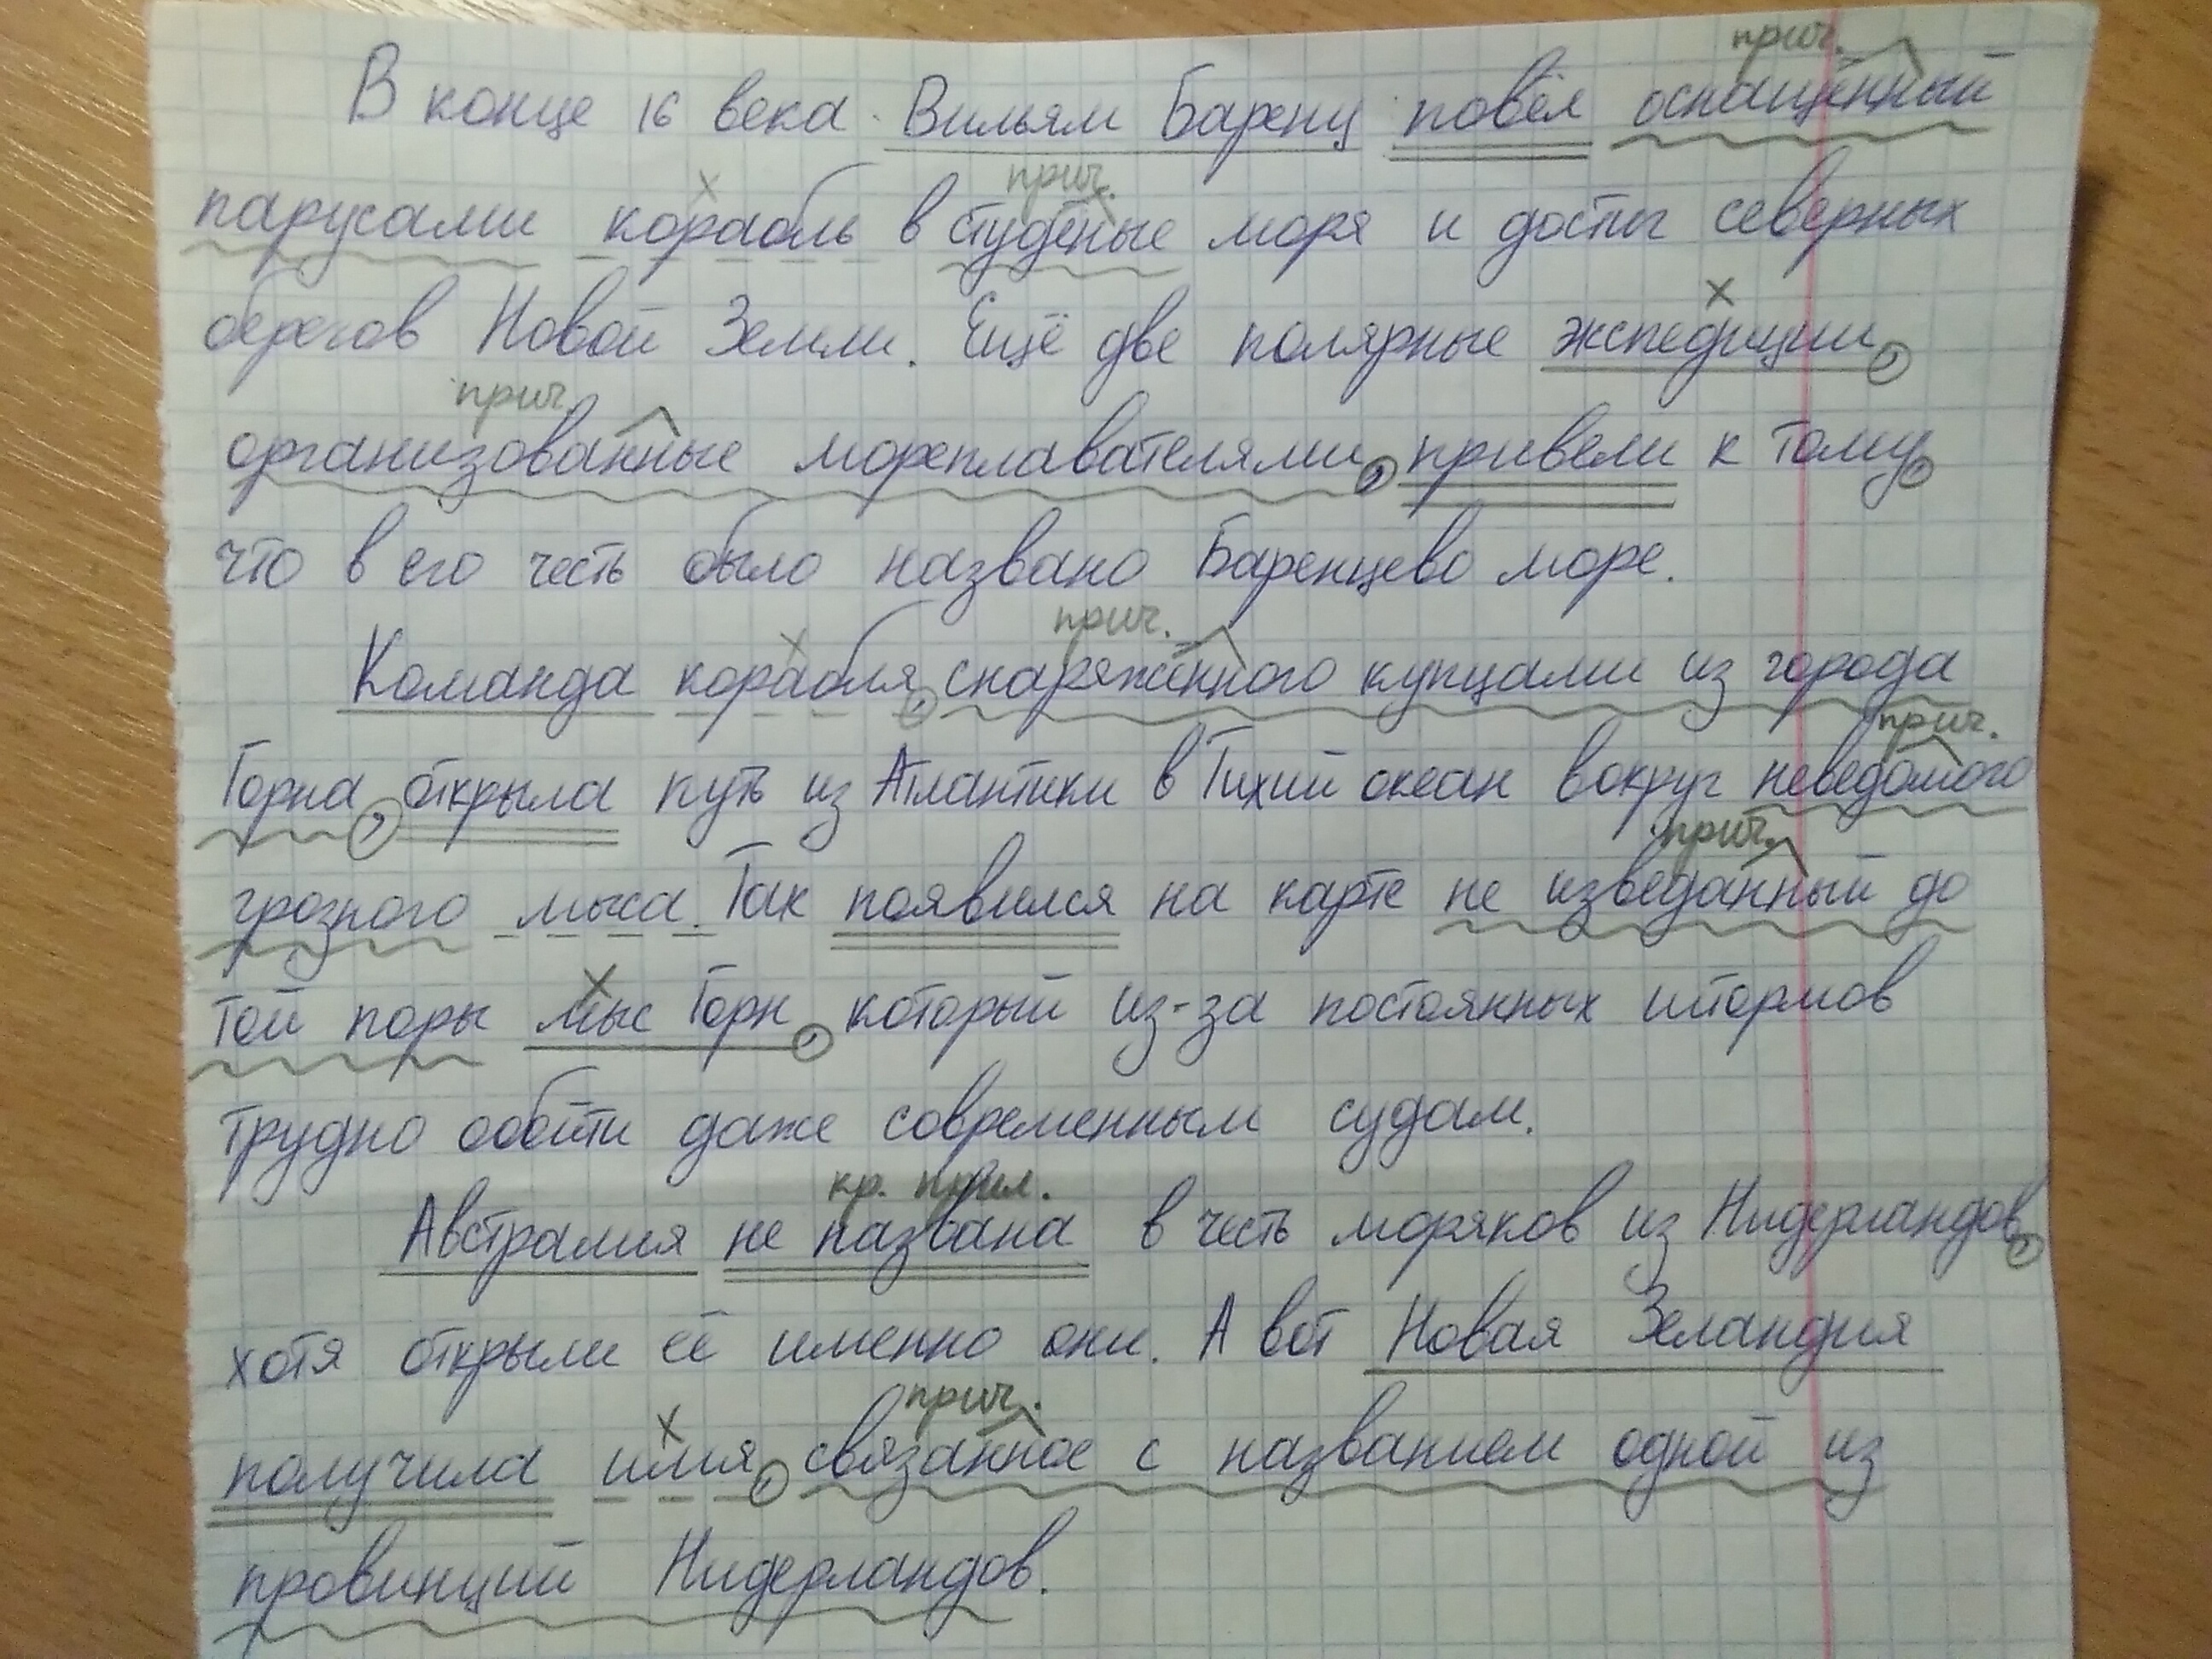 прич.
В конце 16 века Вильям Баренц повёл оснащённый
прич.
парусами корабль в студёные моря и достиг северных
берегов Новой Земли. Ещё две полярные экспедиции,
прич.
организованные мореплавателями, привели к тому,
что в его честь было названо Баренцево море.
прич.
Команда корабля, снаряжённого купцами из города
прич.
Горна, открыла путь из Атлантики в Тихий океан вокруг неведомого
прич.
грозного мыса. Так появился на карте не изведанный до
той поры мыс Горн, который из-за постоянных штормов
трудно обойти даже современным судам.
кр. прил.
Австралия не названа в честь моряков из Нидерландов,
хотя открыли её именно они. А вот Новая Зеландия
прич.
получила имя, связанное с названием одной из
провинций Нидерландов.